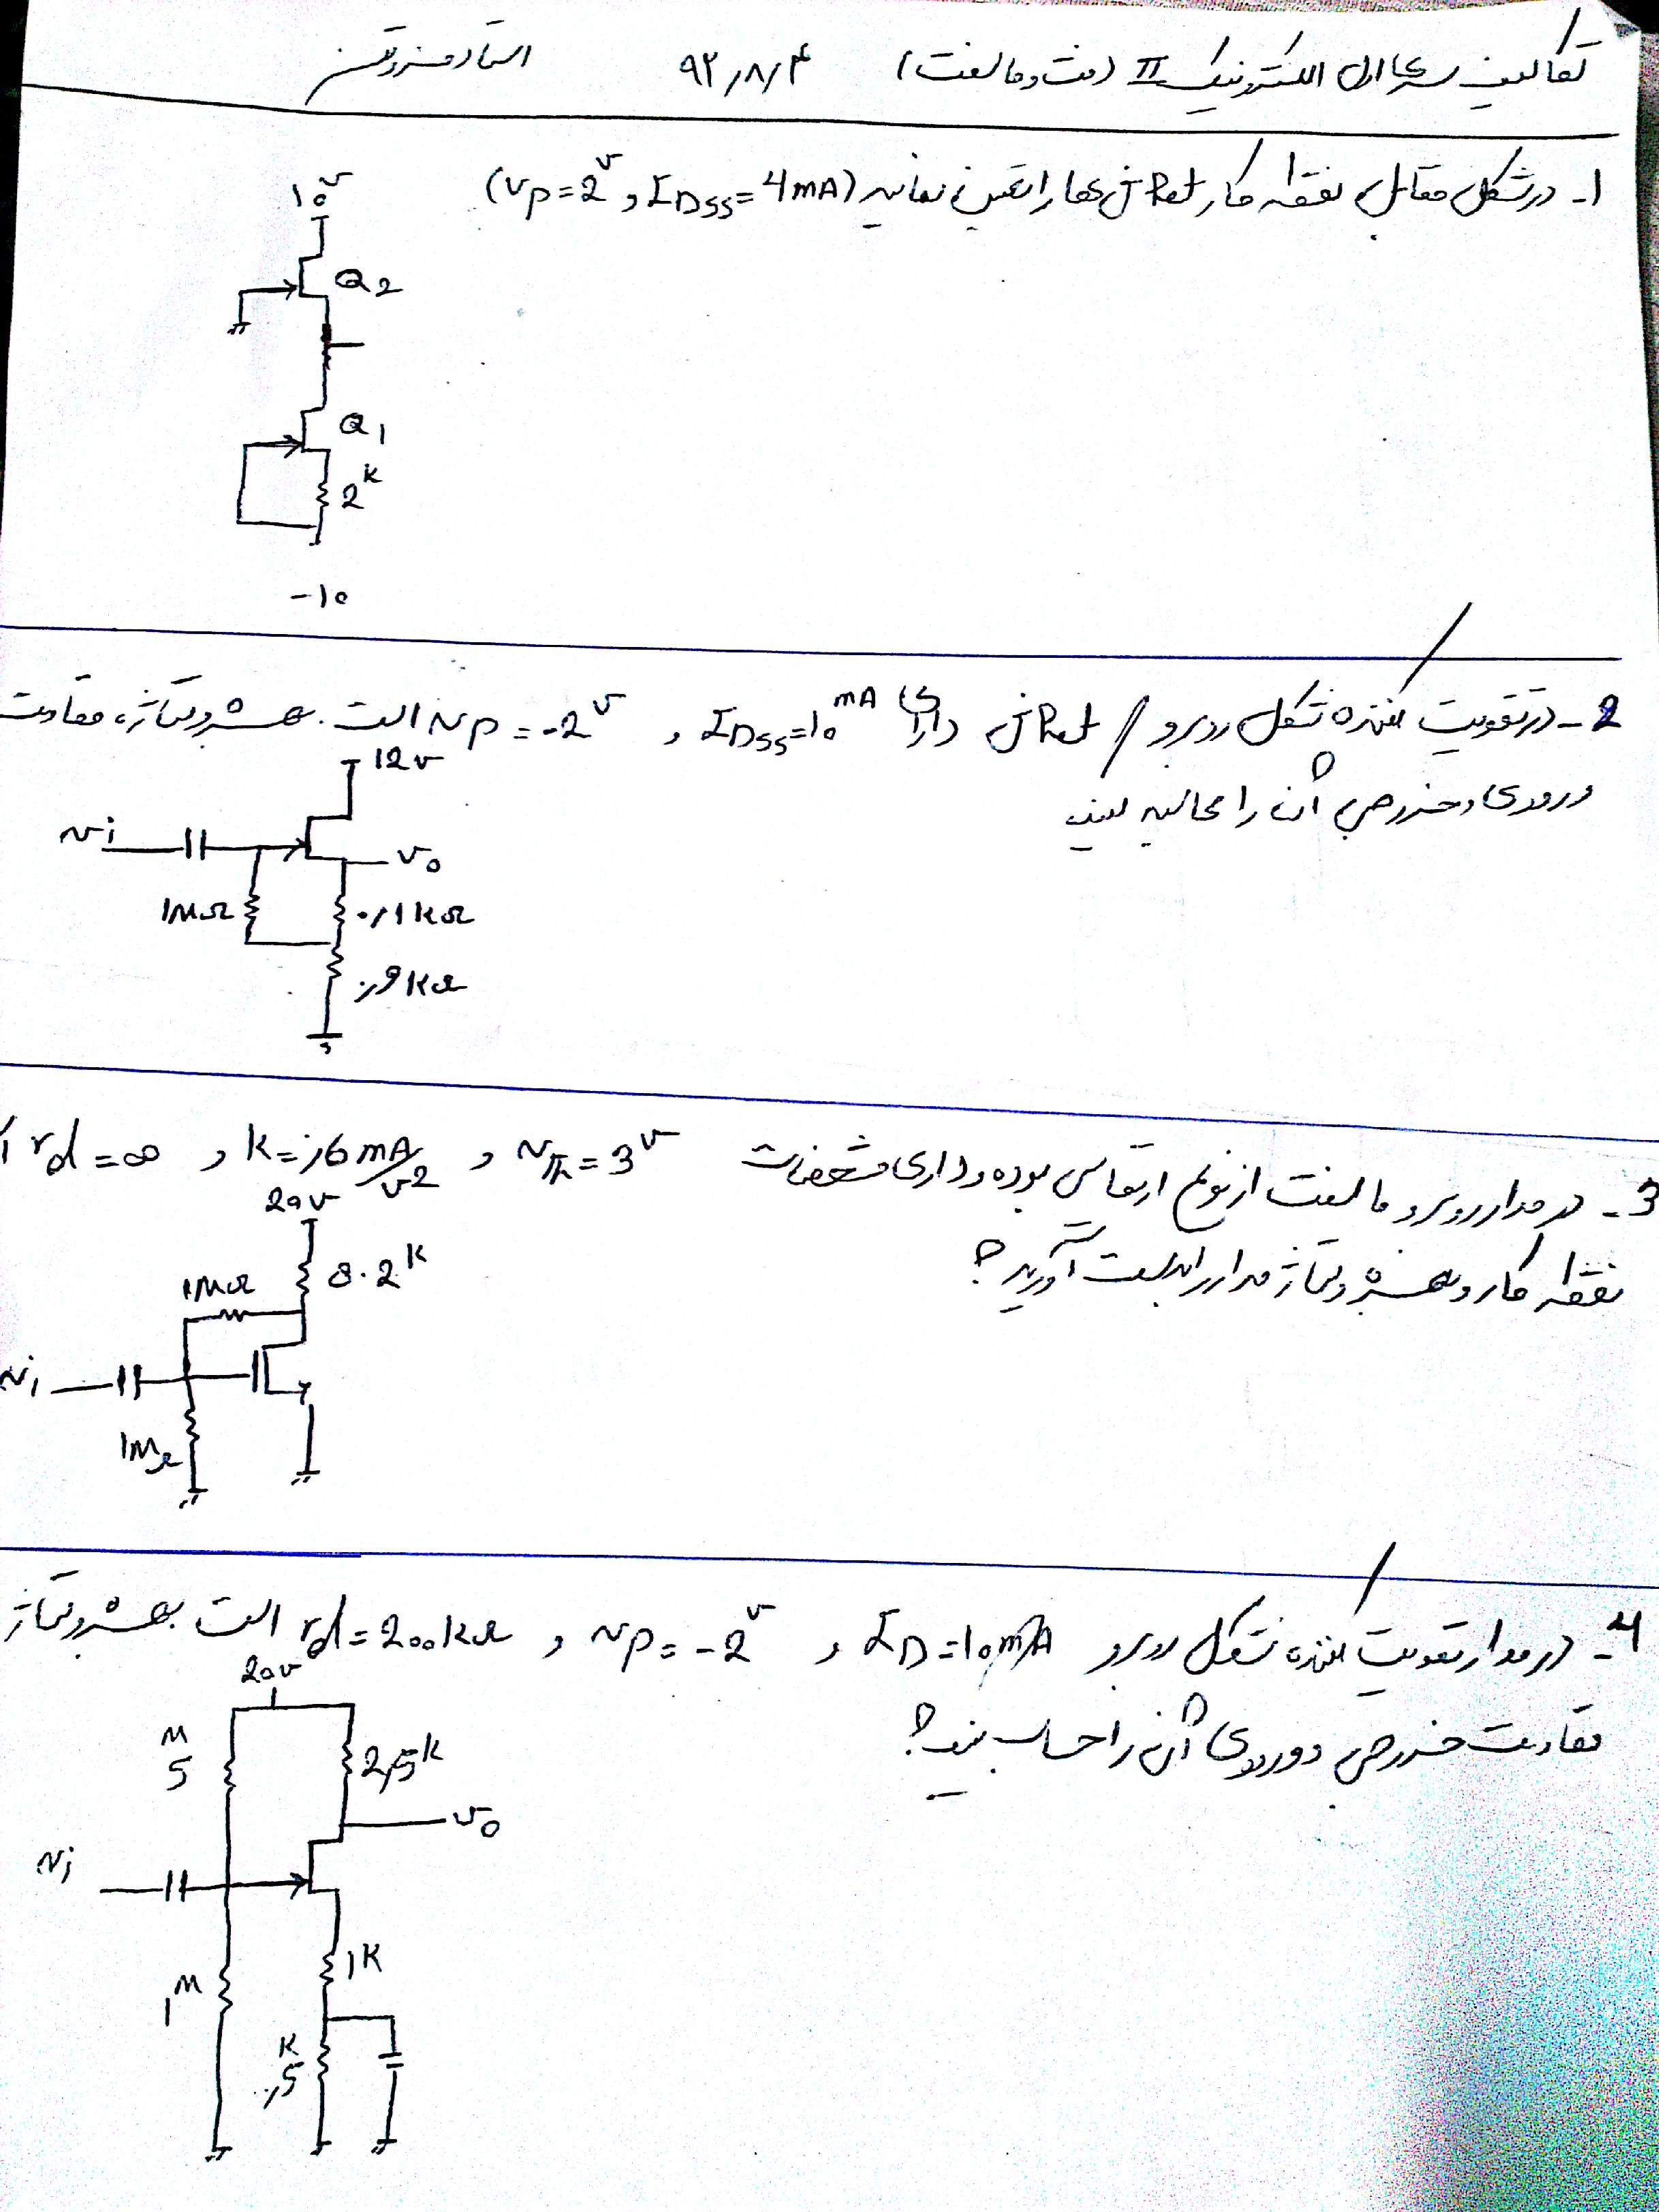 تکالیف سری اول الکترونیک II (فت و ماسفت) ۹۲/۸/۴ استاد
۱- در شکل مقابل نقطه کار Jfet ها را تعیین نمایید (Vp=2v , IDSS=4mA)
10v
Q2
Q1
2k
-10
2- در تقویت کننده شکل روبرو Jfet دارای IDSS=10mA , vp=-2v است. بهره ولتاژ، مقاومت
ورودی و خروجی آن را محاسبه کنید
12v
vi
vo
1MΩ
۰/1kΩ
۰/9kΩ
3- در مدار روبرو ماسفت از نوع ارتقایی بوده و دارای مشخصات vTh=3v , k=۰/6mA/v2 , rd=∞
نقطه کار و بهره ولتاژ مدار را بدست آورید؟
20v
1MΩ
8.2k
vi
1MΩ
4- در مدار تقویت کننده شکل روبرو ID=10mA , vp=-2v , rd=200kΩ است بهره ولتاژ
مقاومت خروجی و ورودی آن را حساب کنید؟
20v
5M
2,5k
vo
vi
1k
1M
۰/5k